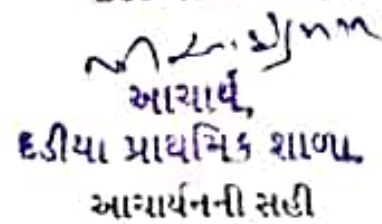 આચાર્ય,
દડીયા પ્રાથમિક શાળા.
આચાર્યનની સહી